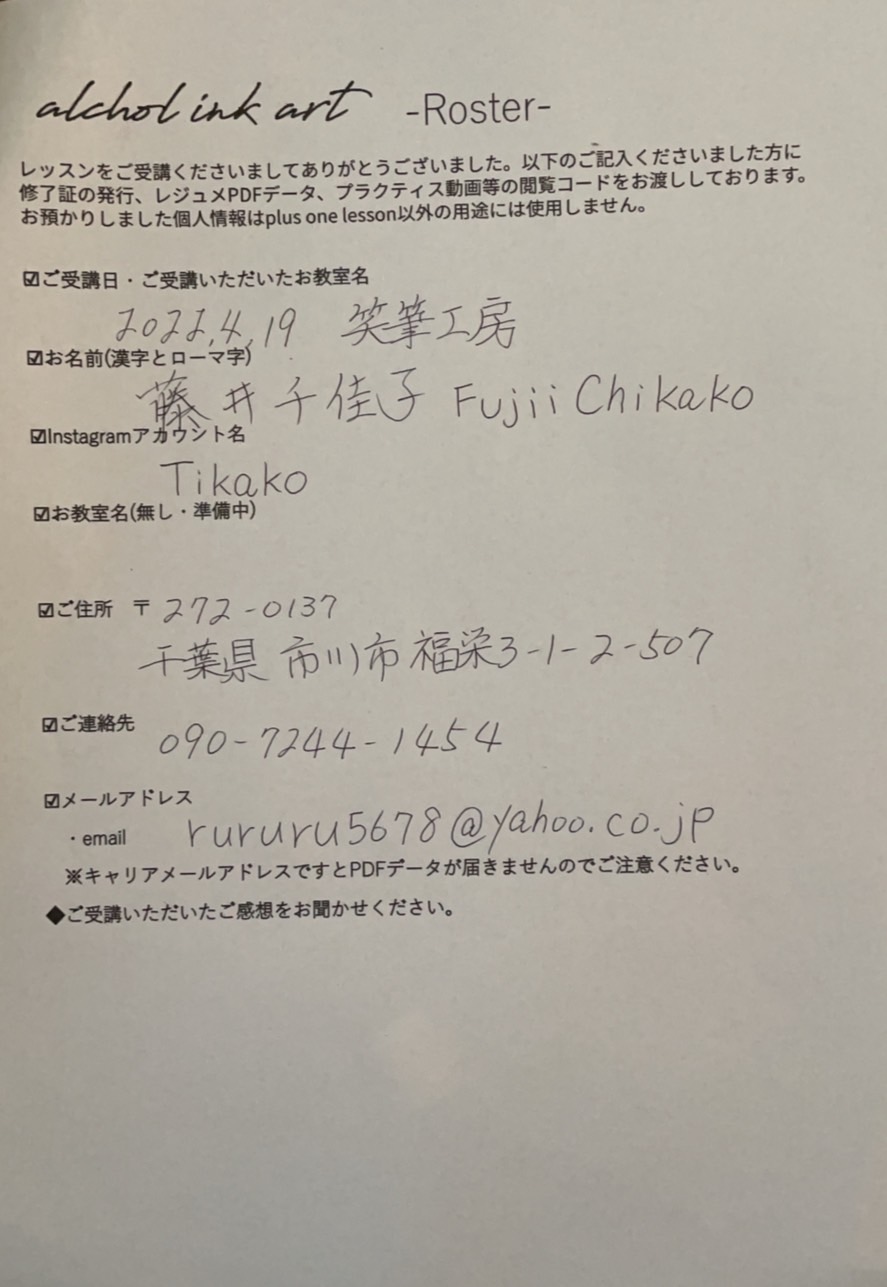 alchol ink art -Roster-
レッスンをご受講くださいましてありがとうございました。以下のご記入くださいました方に
修了証の発行、レジュメPDFデータ、プラクティス動画等の閲覧コードをお渡ししております。
お預かりしました個人情報はplus one lesson以外の用途には使用しません。
☑ご受講日・ご受講いただいたお教室名
2022.4.19 笑筆工房
☑お名前(漢字とローマ字)
藤井千佳子 Fujii Chikako
☑Instagramアカウント名
Tikako
☑お教室名(無し・準備中)
☑ご住所 〒272-0137
千葉県市川市福栄3-1-2-507
☑ご連絡先
090-7244-1454
☑メールアドレス
・email rururu5678@yahoo.co.jp
※キャリアメールアドレスですとPDFデータが届きませんのでご注意ください。
◆ご受講いただいたご感想をお聞かせください。